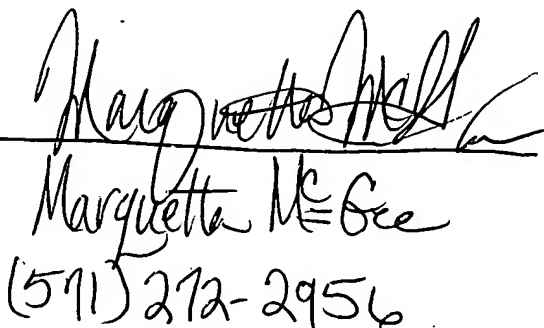 Marquetta McGee
Marquetta McGee
(571) 272-2956